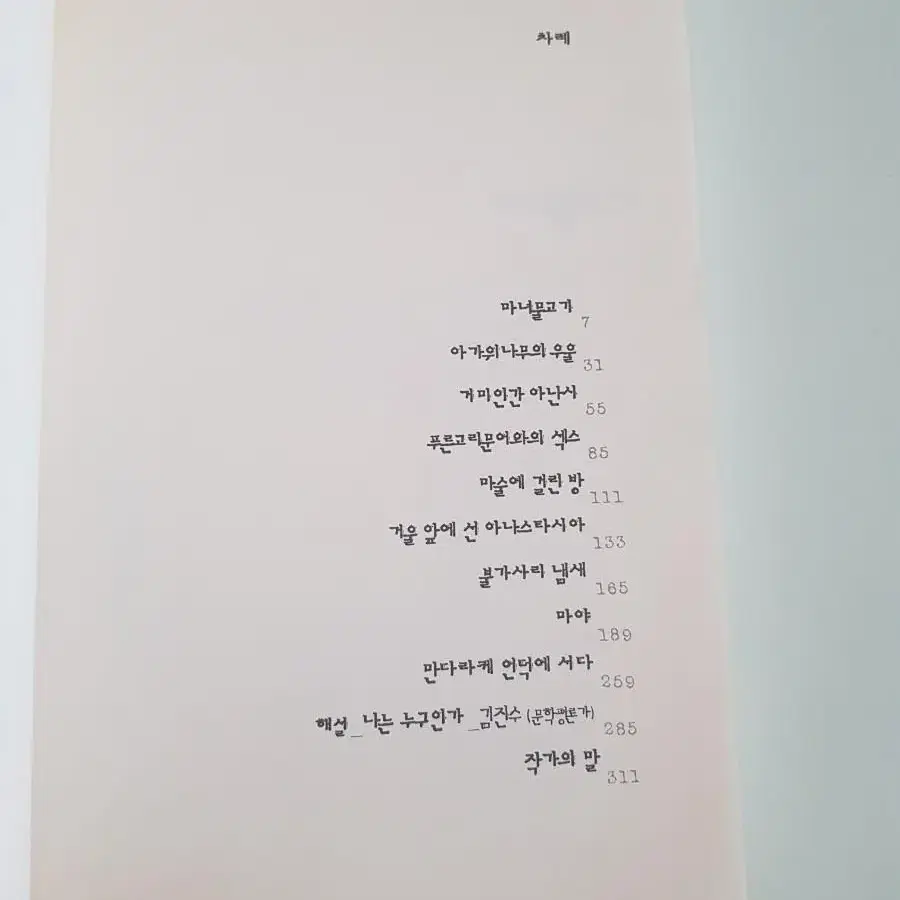 차례
마녀물고기 7
아가위나무의 우울 31
거미인간 아난시 55
푸른고리문어와의 섹스 85
마술에 걸린 방 111
거울 앞에 선 아나스타시아 133
불가사리 냄새 165
마야 189
만다라케 언덕에 서다 259
해설_나는 누구인가_김진수(문학평론가) 285
작가의 말 311